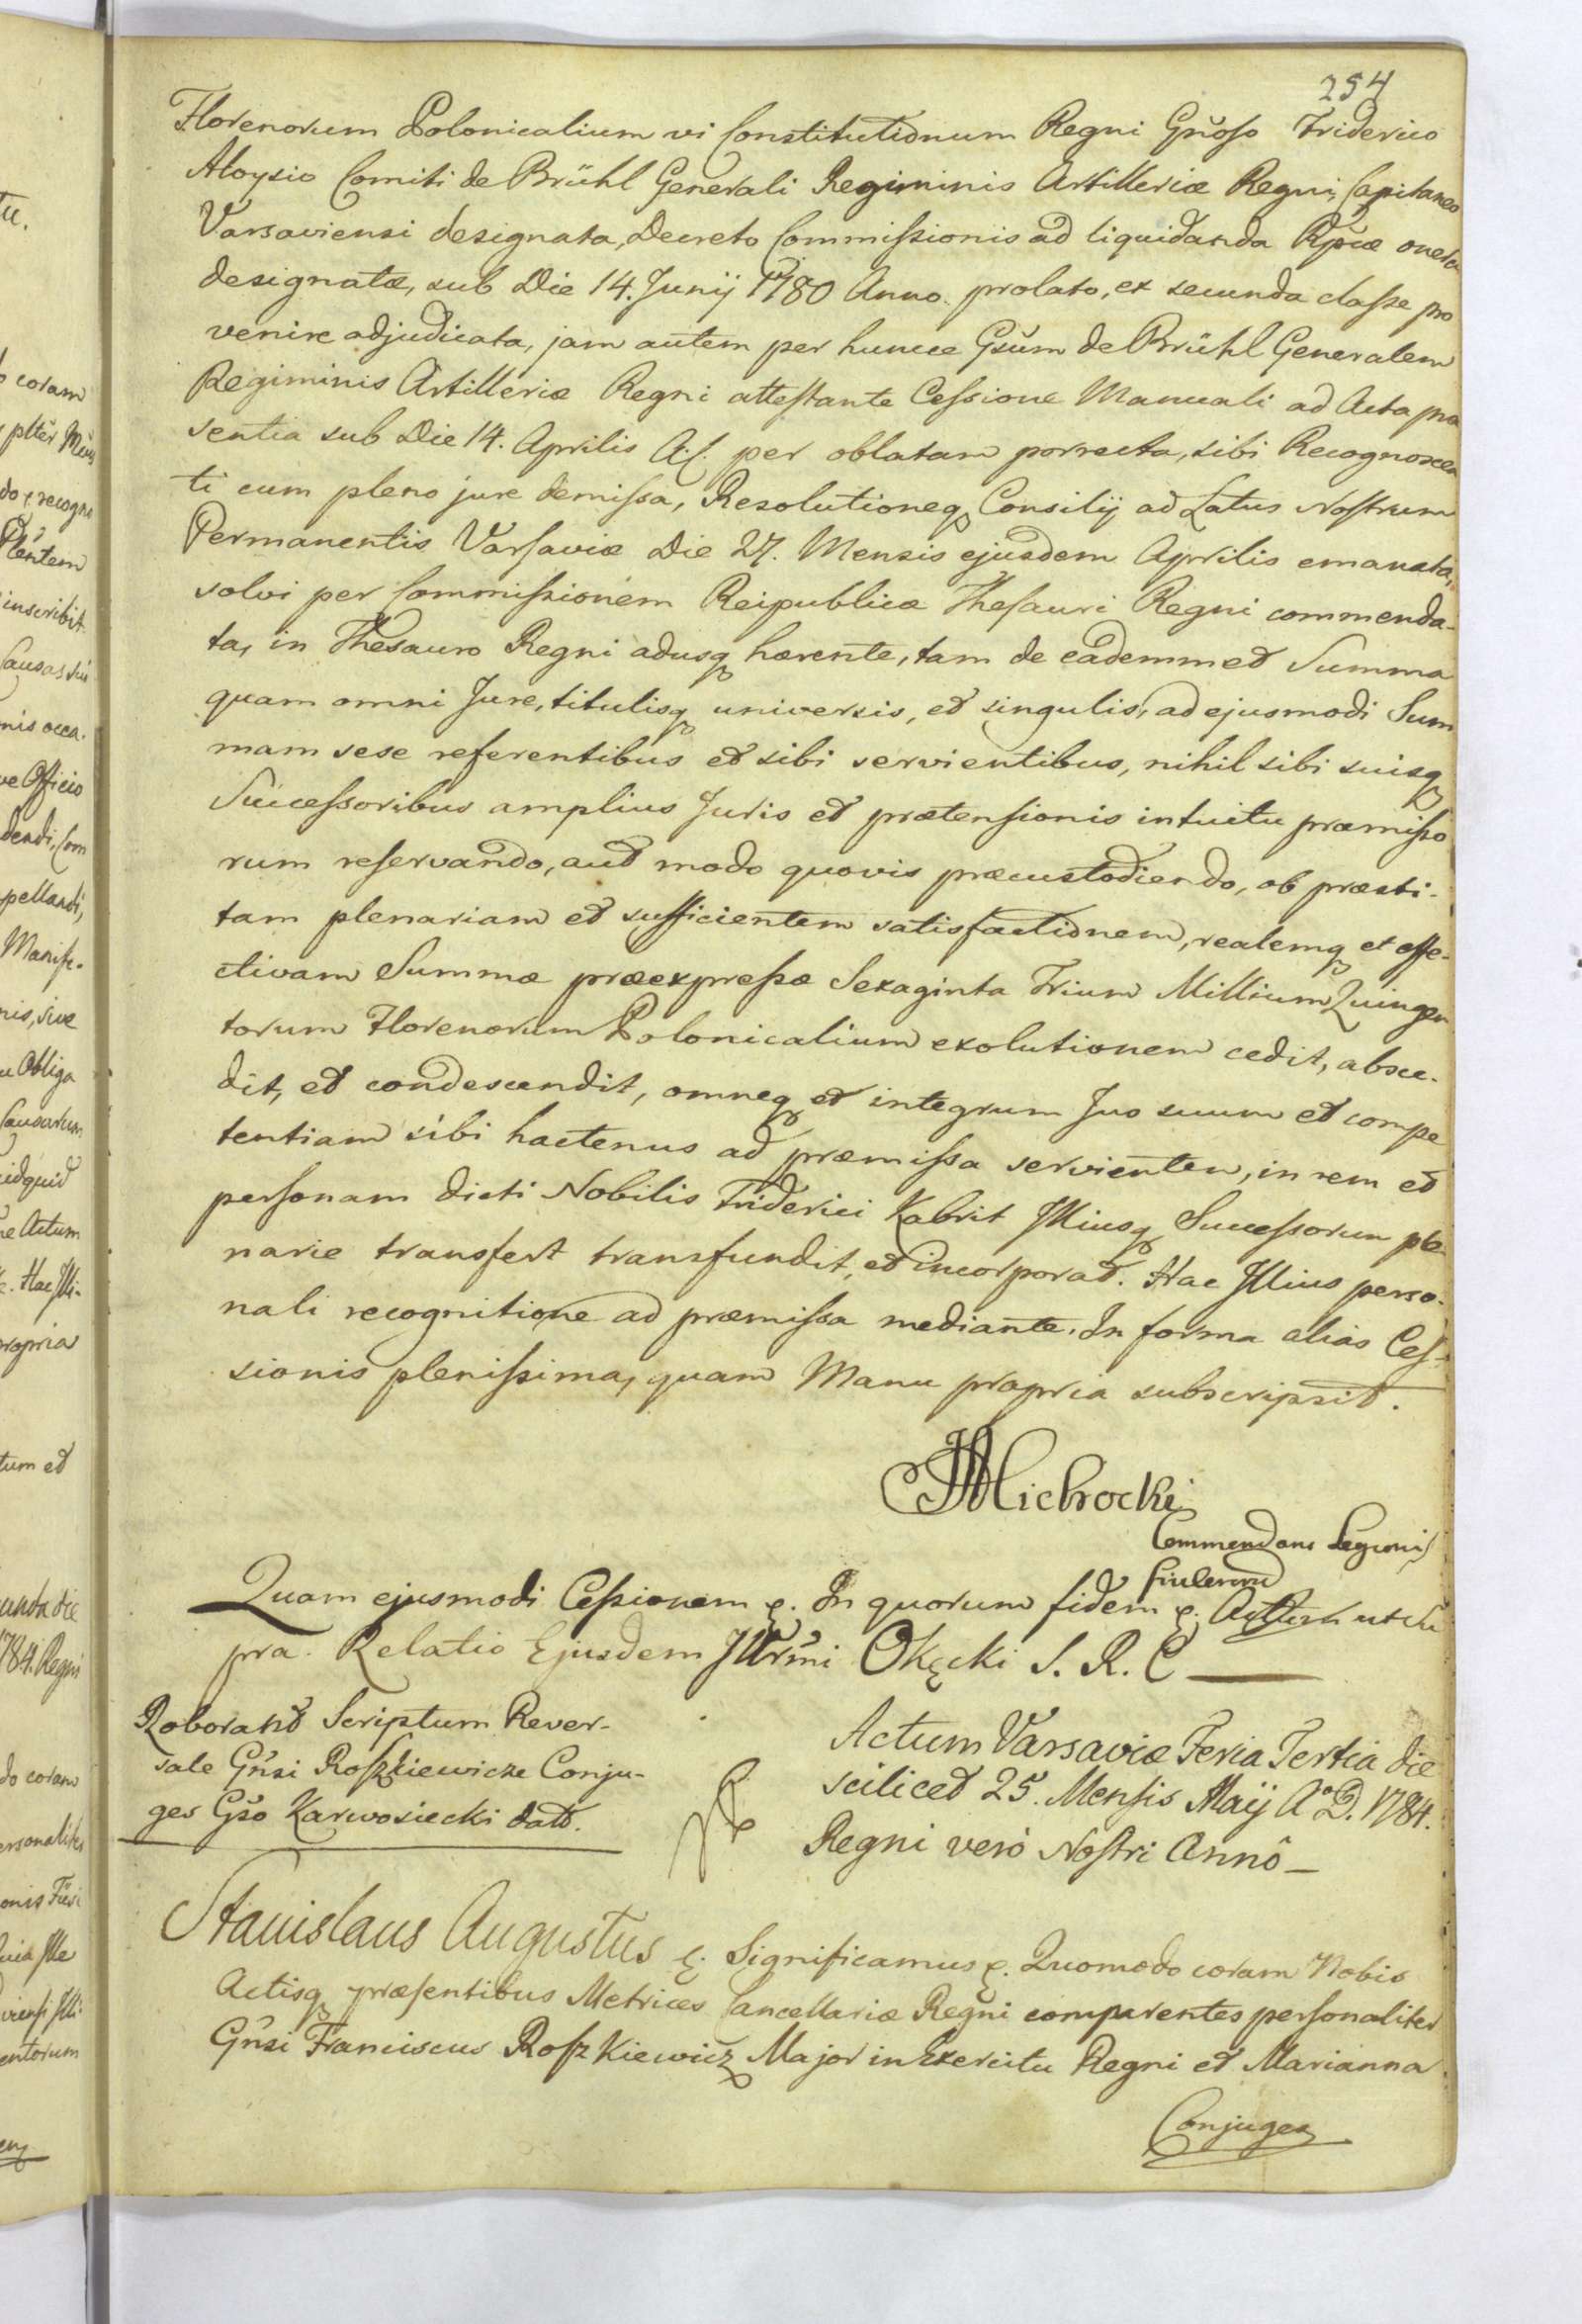 254
Florenorum Polonicalium vi Constitutionum Regni Gnoso Friderico
Aloysio Comiti de Brühl Generali Regiminis Artilleriæ Regni, Capitaneo
Varsaviensi designata, Decreto Commissionis ad liquidanda Rpcæ onera
designatæ, sub Die 14. Junij 1780 Anno prolato, ex secunda classe pro
venire adjudicata, jam autem per huncce Gsum de Brühl Generalem
Regiminis Artilleriæ Regni attestante Cessione Manuali ad Acta præ
sentia sub Die 14. Aprilis A. C. per oblatam porrecta, sibi Recognoscen
ti cum pleno jure demissa, Resolutioneq Consilij ad Latus Nostrum
Permanentis Varsaviæ Die 27. Mensis ejusdem Aprilis emanata,
solvi per Commissionem Reipublicæ Thesauri Regni commenda-
ta, in Thesauro Regni adusq hærente, tam de eademmet Summa
quam omni Jure, titulisq universis, et singulis, ad ejusmodi Sum
mam sese referentibus et sibi servientibus, nihil sibi suisq
Successoribus amplius Juris et prætensionis intuitu præmisso
rum reservando, aut modo quovis præcustodiendo, ob præsti-
tam plenariam et sufficientem satisfactionem, realemq et effe-
ctivam Summæ præexpressæ Sexaginta Trium Millium Quingen
torum Florenorum Polonicalium exolutionem cedit, absce-
dit, et condescendit, omneq et integrum Jus suum et compe
tentiam sibi hactenus ad præmissa servientem, in rem et
personam dicti Nobilis Friderici Kabrit Illiusq Successorum ple
narie transfert transfundit, et incorporat. Hac Illius perso-
nali recognitione ad præmissa mediante. In forma alias Ces-
sionis plenissima, quam Manu propria subscripsit.
Michrocki
Commendans Legionis
Quam ejusmodi Cessionem &. In quorum fidem &. Actum ut su
pra. Relatio Ejusdem Illrmi Okęcki S. R. C
Roborat Scriptum Rever-
sale Gnsi Roszkiewicze Conju-
ges Gso Karwosiecki datt.
Actum Varsaviæ Feria Tertia die
scilicet 25. Mensis Maij A° D. 1784.
Regni verò Nostri Annô
Stanislaus Augustus &. Significamus &. Quomodo coram Nobis
Actisq præsentibus Metrices Cancellariæ Regni comparentes personaliter
Gnsi Franciscus Roszkiewicz Major in Exercitu Regni et Marianna
Conjuges